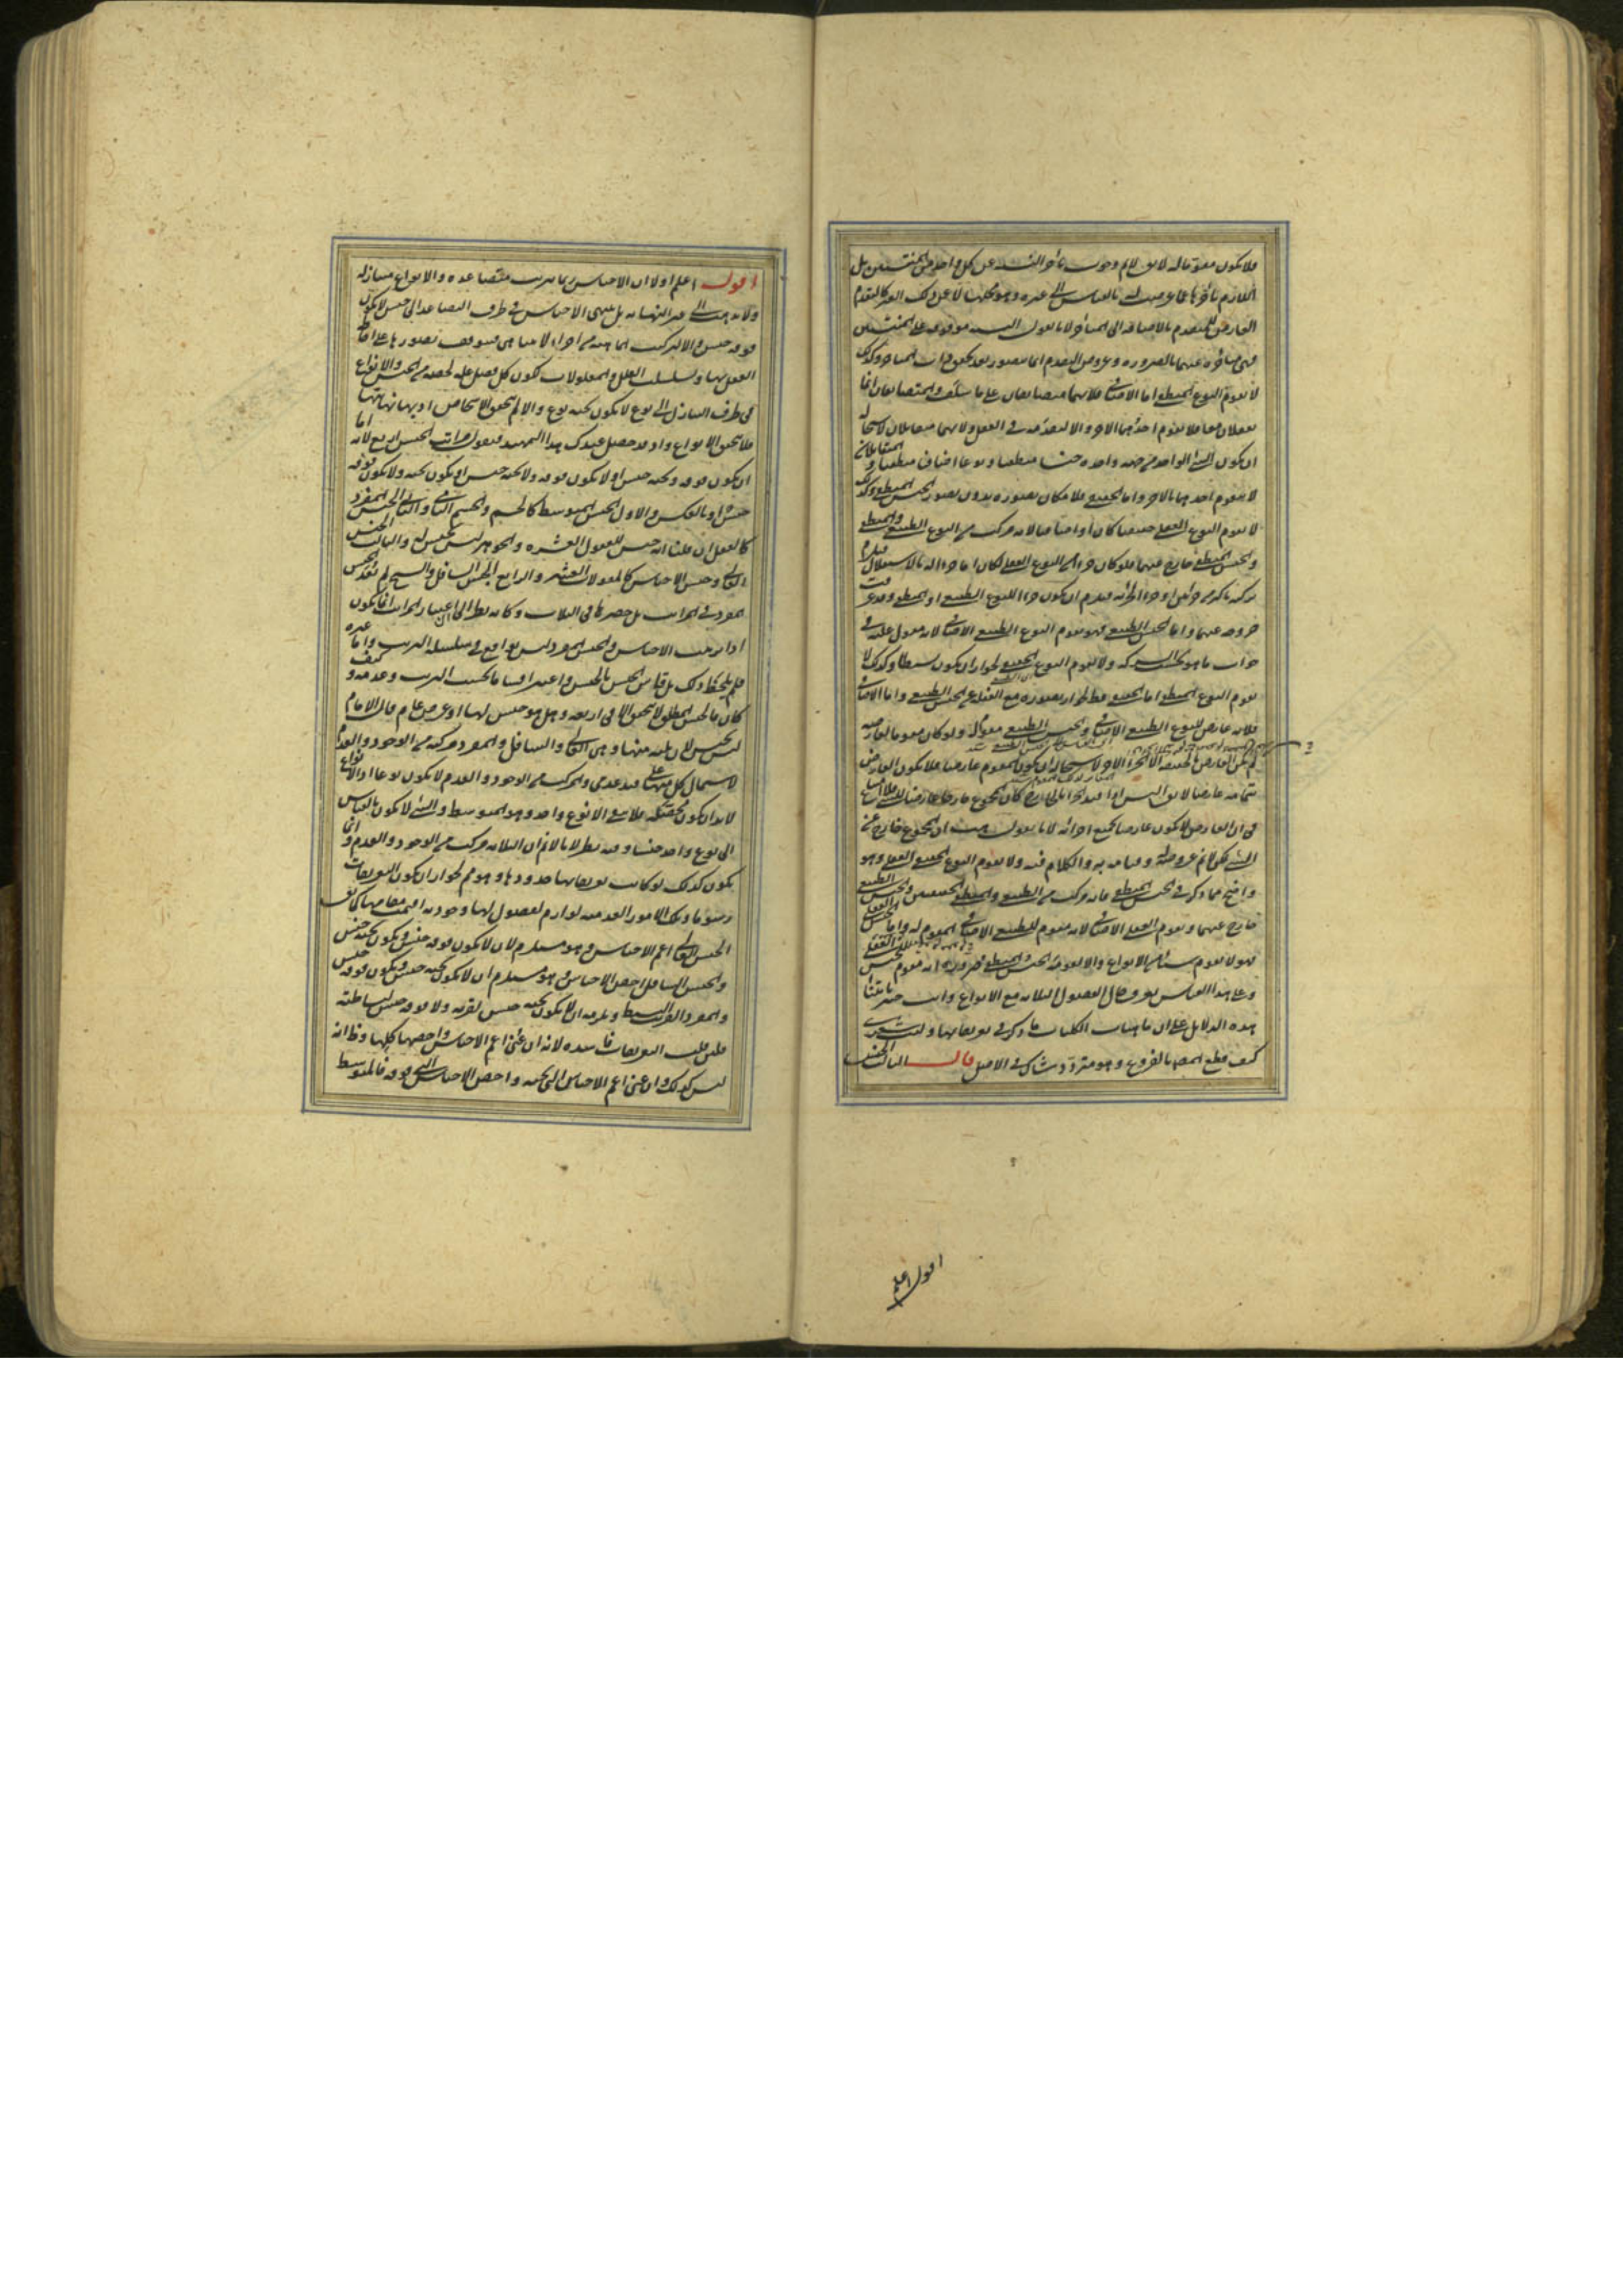 فلا يكون مقوما له لا يقال لا نم وجوب تأخر النسبة عن كل واحد من المنتسبين بل
اللازم تأخرها عما عرضت له بالقياس إلى غيره وهو محلها لا عن ذلك الغير كالتقدم
العارض للمتقدم بالإضافة إلى المتأخر لأنا نقول النسبة موقوفة على المنتسبين
فهي متأخرة عنهما بالضرورة وعروض التقدم إنما يتصور بعد تحقق ذات المتأخر وكذلك
لا يقوم النوع المنطقي أما الإضافي فلأنهما متضايفان على ما سلف والمتضايفان إنما
يعقلان معا فلا يقوم أحدهما الآخر وإلا لتقدمه في التعقل ولأنهما متقابلان لاستحالة
أن يكون الشيء الواحد من جهة واحدة جنسا منطقيا ونوعا إضافيا منطقيا والمتقابلان
لا يتقوم أحدهما بالآخر وأما الحقيقي فلإمكان تصوره بدون تصور الجنس المنطقي وكذلك
لا يقوم النوع العقلي حقيقيا كان أو إضافيا لأنه مركب من النوع الطبيعي والمنطقي
والجنس المنطقي خارج عنهما فلو كان جزأ من النوع العقلي لكان إما جزأ له بالاستقلال فيلزم
تركبه بأكثر من جزئين أو جزأ لجزئه فيلزم أن يكون جزأ للنوع الطبيعي أو المنطقي وقد عرفت
خروجه عنهما وأما الجنس الطبيعي فهو يقوم النوع الطبيعي الإضافي لأنه مقول عليه في
جواب ما هو بحسب الشركة ولا يقوم النوع الحقيقي لجواز أن يكون بسيطا وكذلك لا
يقوم النوع المنطقي أما الحقيقي فظ لجواز تصوره مع الغفلة عن الجنس الطبيعي وأما الإضافي
فلأنه عارض للنوع الطبيعي الإضافي والجنس الطبيعي مقوم له ولو كان مقوما لعارضه
لم يكن العارض بالحقيقة إلا الجزء الآخر لاستحالة أن يكون المقوم عارضا فلا يكون العارض
بتمامه عارضا لا يقال أليس إذا قيد الجزء بالخارج كان المجموع خارجا عارضا للملامتناع
في أن العارض لا يكون عارضا بجميع أجزائه لأنا نقول هب أن المجموع خارج عن
الشيء لكن لا نم عروضه له وقيامه به والكلام فيه ولا يقوم النوع الحقيقي العقلي وهو
واضح مما ذكر في الجنس المنطقي فإنه مركب من الطبيعي والمنطقي الحقيقيين والجنس الطبيعي
خارج عنهما ويقوم العقلي الإضافي لأنه مقوم للطبيعي الإضافي المقوم له وأما الجنس العقلي
فهو لا يقوم شيئا من الأنواع وإلا لقومه الجنس المنطقي ضرورة أنه مقوم للجنس العقلي
وعلى هذا القياس يعرف حال الفصول الثلاثة مع الأنواع وأنت خبير بابتناء
هذه الدلايل على أن ماهيات الكليات ما ذكر في تعريفاتها وليت شعري
كيف قطع المص بالفروع وهو متردد شاك في الأصل قال الثالث الجنس
أقول اعلم
أقول اعلم أولا أن الأجناس ربما تترتب متصاعدة والأنواع متنازلة
ولا تذهب إلى غير النهاية بل تنتهي الأجناس في طرف التصاعد إلى جنس لا يكون
فوقه جنس وإلا لتركبت الماهية من أجزاء لا تتناهى فيتوقف تصورها على إحاطة
العقل بها وتسلسلت العلل والمعلولات لكون كل فصل علة لحصة من الجنس والأنواع
في طرف التنازل إلى نوع لا يكون تحته نوع وإلا لم تتحقق الأشخاص إذ بها نهايتها
فلا تتحقق الأنواع وإذ قد حصل عندك هذا التمهيد فنقول مراتب الجنس أربع لأنه إما
أن يكون فوقه وتحته جنس أو لا يكون فوقه ولا تحته جنس أو يكون تحته ولا يكون فوقه
جنس أو بالعكس والأول الجنس المتوسط كالجسم والجسم النامي والثاني الجنس المفرد
كالعقل إن قلنا إنه جنس للعقول العشرة والجوهر ليس بجنس له والثالث الجنس
العالي وجنس الأجناس كالمقولات العشر والرابع الجنس السافل والشيخ لم يعد الجنس
المفرد في المراتب بل حصرها في الثلاث وكأنه نظر إلى أن اعتبار المراتب إنما يكون
إذا ترتبت الأجناس والجنس المفرد ليس بواقع في سلسلة الترتيب وأما غيره
فلم يلاحظ ذلك بل قاس الجنس بالجنس واعتبر أقسامه بحسب الترتب وعدمه وكيف
كان فالجنس المطلق لا يتحقق إلا في أربعة وهل هو جنس لها أو عرض عام قال الإمام
ليس بجنس لأن ثلثة منها وهي العالي والسافل والمفرد مركبة من الوجود والعدم
لاشتمال كل منها على قيد عدمي والمركب من الوجود والعدم لا يكون نوعا إذ الأنواع
لا بد أن يكون محصلة فلا يبقى إلا نوع واحد وهو المتوسط والشيء لا يكون بالقياس
إلى نوع واحد جنسا وفيه نظر لأنا لا نم أن الثلاثة مركبة من الوجود والعدم وإنما
يكون كذلك لو كانت تعريفاتها حدودها وهو مم لجواز أن يكون التعريفات
رسوما وتلك الأمور العدمية لوازم لفصول لها وجودية أقيمت مقامها كما يق
الجنس العالي أعم الأجناس وهو مستلزم لأن لا يكون فوقه جنس ويكون تحته جنس
والجنس السافل أخص الأجناس وهو مستلزم أن لا يكون تحته جنس ويكون فوقه جنس
والمفرد القريب البسيط ويلزمه أن لا يكون تحته جنس لقربه ولا فوقه جنس لبساطته
فلئن قلت التعريفات فاسدة لأنه إن عني أعم الأجناس وأخصها كلها وظ أنه
ليس كذلك وإن عني أعم الأجناس التي تحته وأخص الأجناس التي فوقه فالمتوسط